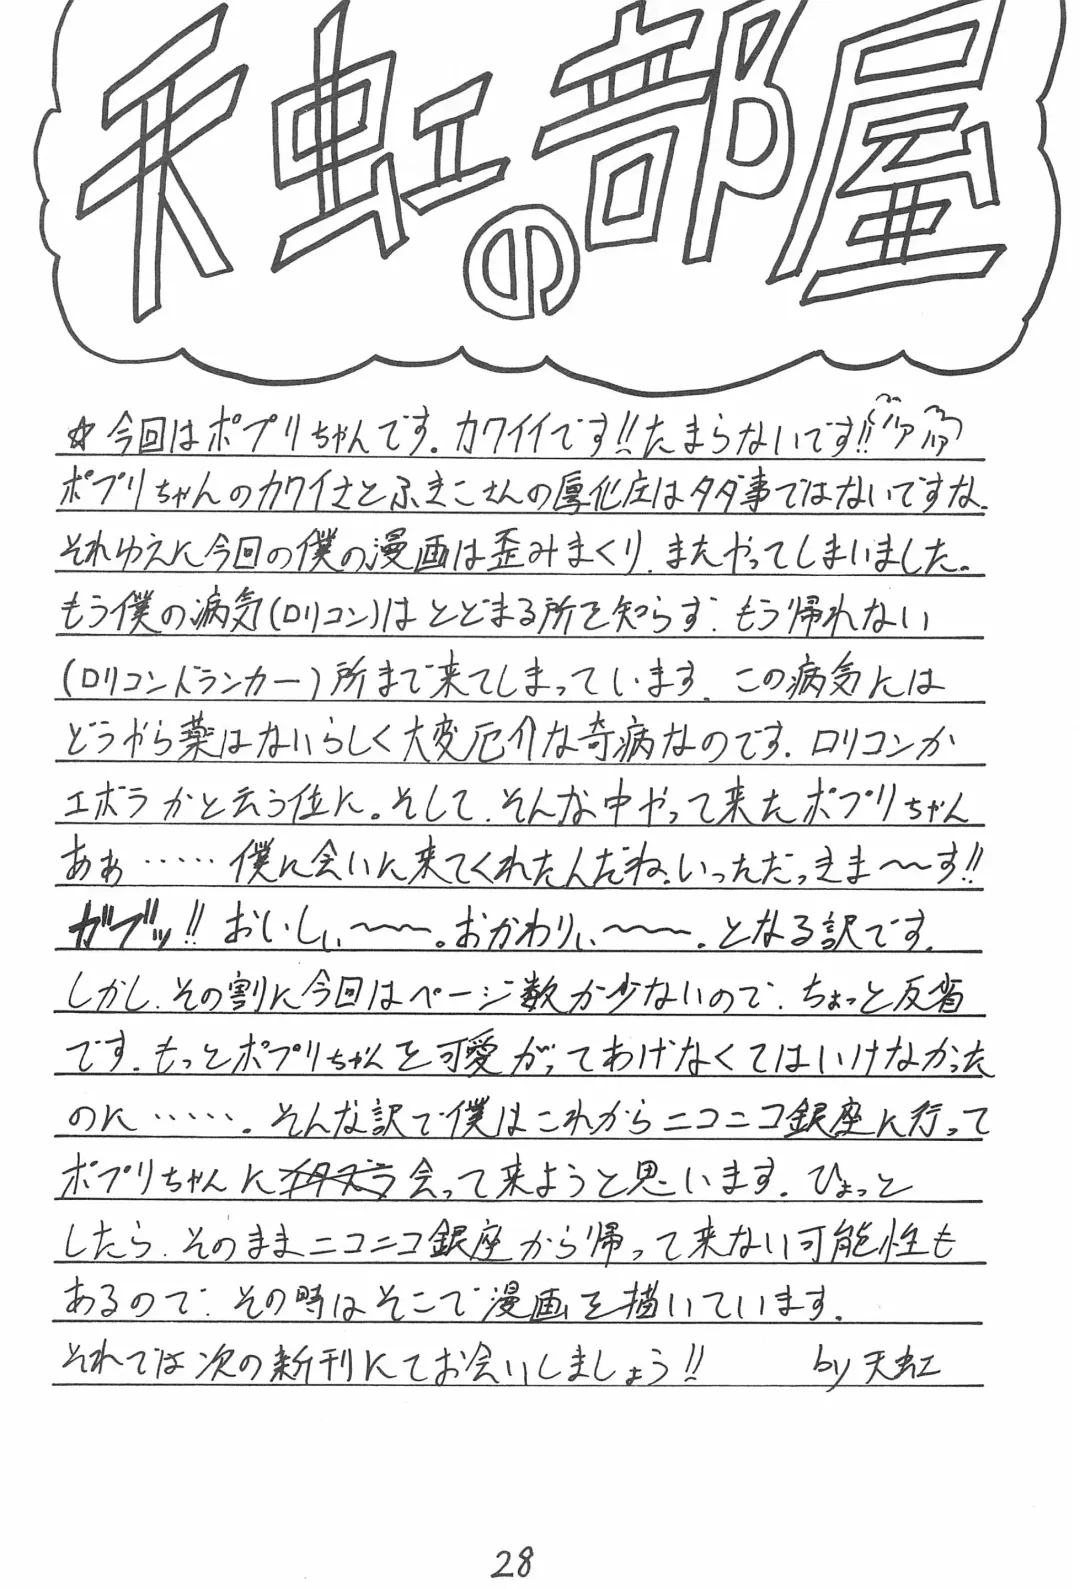 天虹の部屋
☆今回はポプリちゃんです。カワイイです!!たまらないです!!ハァハァ
ポプリちゃんのカワイさとふきこさんの厚化庄はタダ事ではないですな。
それゆえに今回の僕の漫画は歪みまくり、またやってしまいました。
もう僕の病気(ロリコン)はとどまる所を知らず、もう帰れない
(ロリコンドランカー)所まで来てしまっています。この病気には
どうやら薬はないらしく大変厄介な奇病なのです。ロリコンか
エボラかと云う位に。そして、そんな中やって来たポプリちゃん
あぁ……僕に会いに来てくれたんだね。いっただっきま〜〜す!!
ガブッ!!おいしぃ〜〜。おかわりぃ〜〜。となる訳です。
しかし、その割に今回はページ数が少ないので、ちょっと反省
です。もっとポプリちゃんを可愛がってあげなくてはいけなかった
のに……。そんな訳で僕はこれからニコニコ銀座に行って
ポプリちゃんにイタズラ会って来ようと思います。ひょっと
したら、そのままニコニコ銀座から帰って来ない可能性も
あるので、その時はそこで漫画を描いています。
それでは次の新刊にてお会いしましょう!! by天虹
28